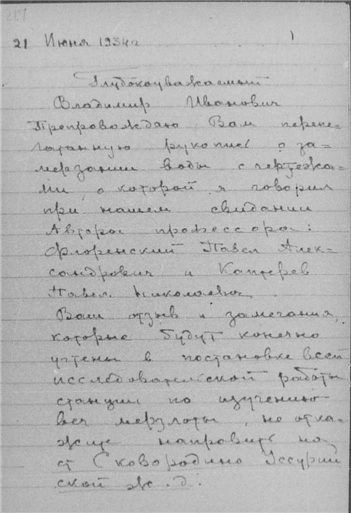 21 Июня 1934 г.
1
Глубокоуважаемый
Владимир Иванович
Препровождаю Вам перепе-
чатанную рукопись о за-
мерзании воды с чертежа-
ми, о которой я говорил
при нашем свидании
Авторы профессора:
Флоренский Павел Алек-
сандрович и Каптерев
Павел Николаевич.
Ваш отзыв и замечания,
которые будут конечно
учтены в постановке всей
исследовательской работы
станции по изучению
веч мерзлоты, не отка-
жите направить на
ст Сковородино Уссурий
ской ж. д.